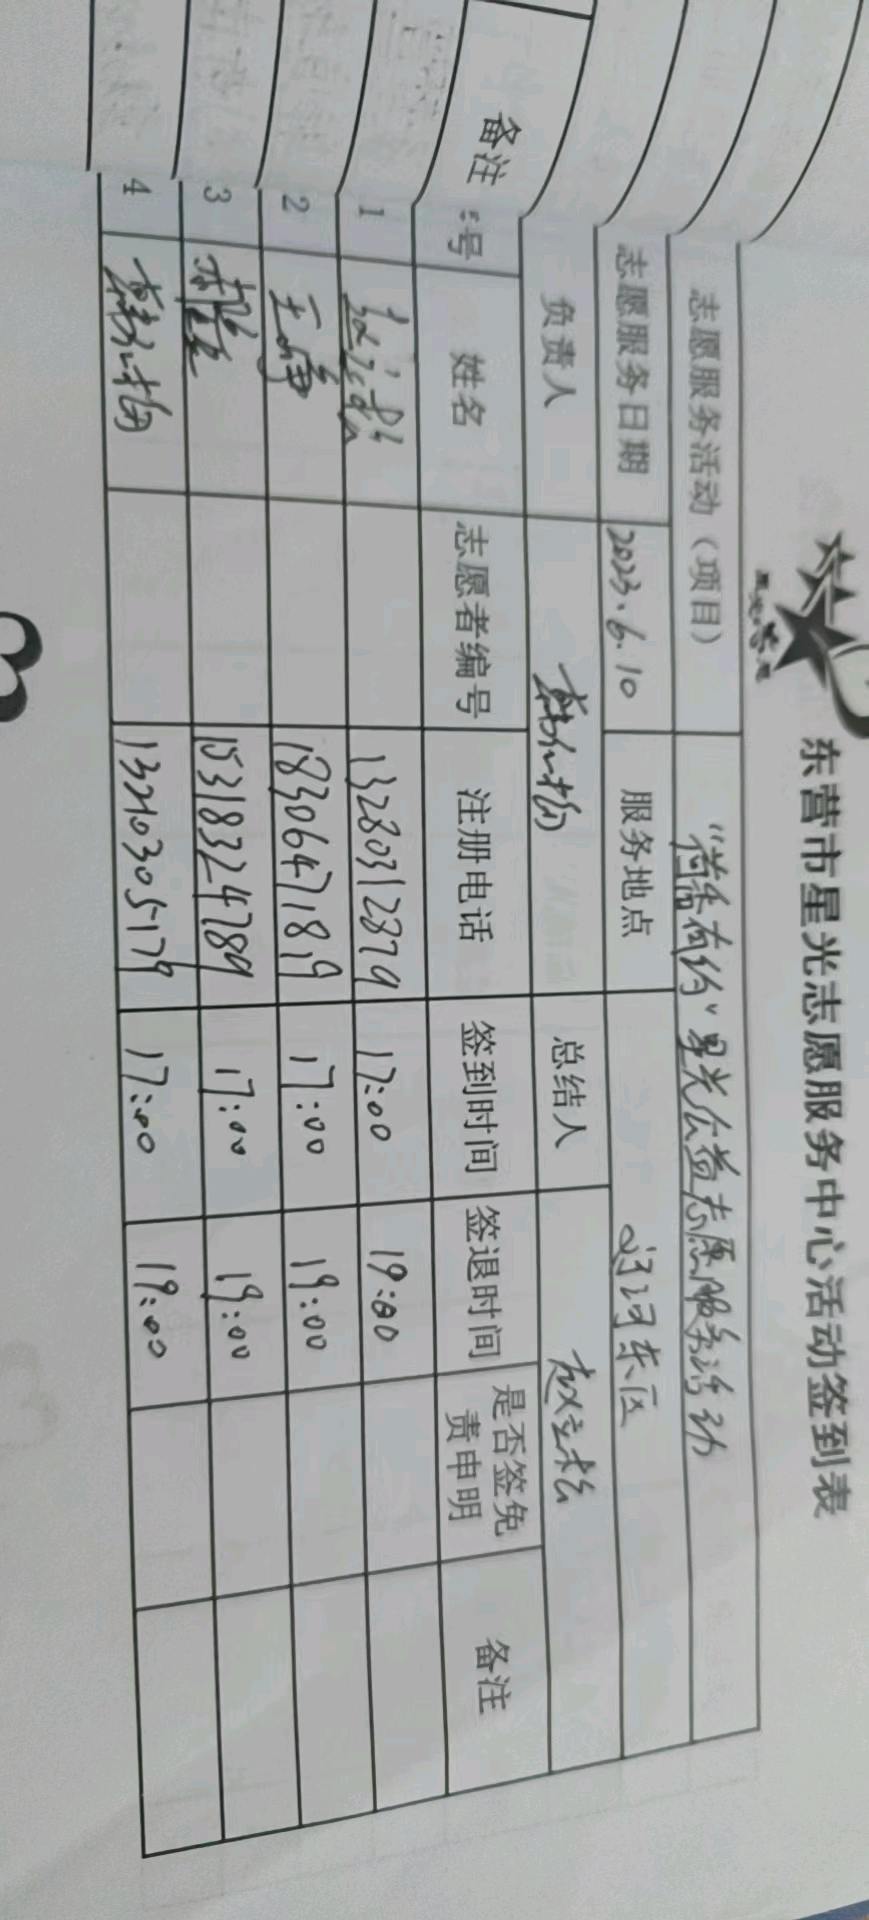 东营市星光志愿服务中心活动签到表
志愿服务活动（项目） 星光公益志愿服务活动
志愿服务日期 2023.6.10 服务地点 东区
负责人 总结人 赵立松
备注 号 姓名 志愿者编号 注册电话 签到时间 签退时间 是否签免责申明 备注
1 13280312879 17:00 19:00
2 王峰 18306471819 17:00 19:00
3 15318324789 17:00 19:00
4 13210305179 17:00 19:00